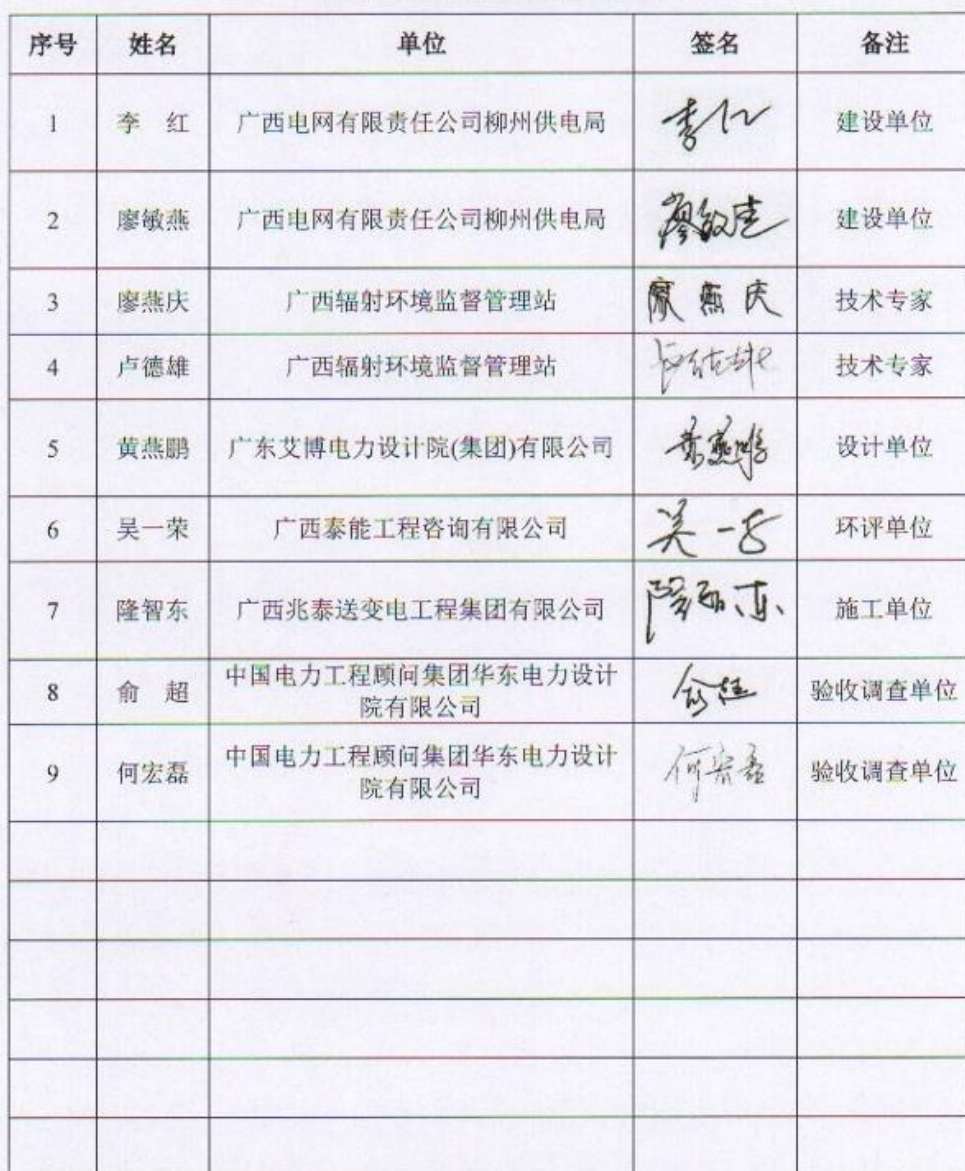 序号 姓名 单位 签名 备注
1 李 红 广西电网有限责任公司柳州供电局 李红 建设单位
2 廖敏燕 广西电网有限责任公司柳州供电局 廖敏燕 建设单位
3 廖燕庆 广西辐射环境监督管理站 廖燕庆 技术专家
4 卢德雄 广西辐射环境监督管理站 技术专家
5 黄燕鹏 广东艾博电力设计院(集团)有限公司 黄燕鹏 设计单位
6 吴一荣 广西泰能工程咨询有限公司 吴一荣 环评单位
7 隆智东 广西兆泰送变电工程集团有限公司 隆智东 施工单位
8 俞 超 中国电力工程顾问集团华东电力设计 俞超 验收调查单位
院有限公司
9 何宏磊 中国电力工程顾问集团华东电力设计 何宏磊 验收调查单位
院有限公司